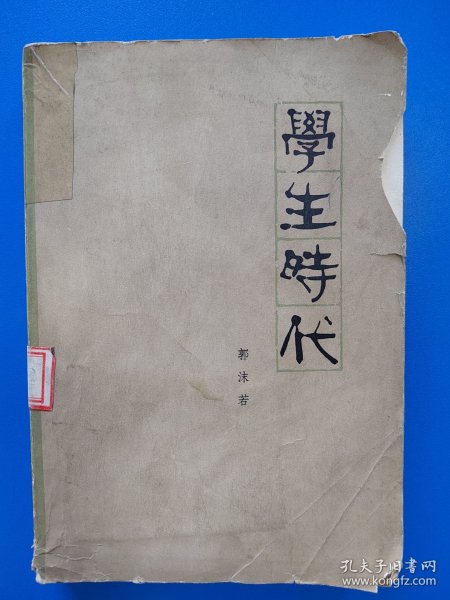 學生時代
郭沫若
孔夫子旧书网
www.kongfz.com